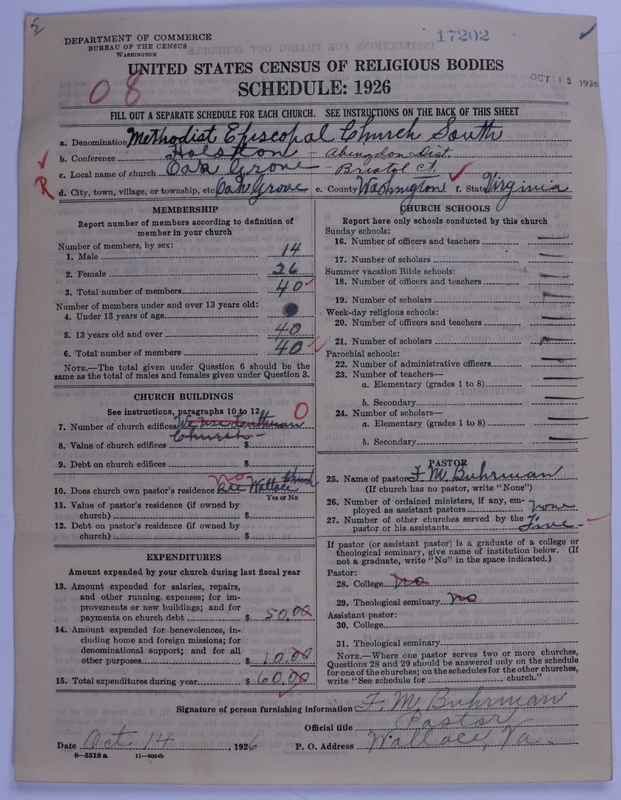 5
DEPARTMENT OF COMMERCE
BUREAU OF THE CENSUS
WASHINGTON
17202
UNITED STATES CENSUS OF RELIGIOUS BODIES
SCHEDULE: 1926
OCT 15 1926
08
FILL OUT A SEPARATE SCHEDULE FOR EACH CHURCH. SEE INSTRUCTIONS ON THE BACK OF THIS SHEET
a. Denomination Methodist Episcopal Church South
b. Conference Holston - Abingdon Dist.
c. Local name of church Oak Grove - Bristol Ct.
R d. City, town, village, or township, etc. Oak Grove e. County Washington f. State Virginia
MEMBERSHIP
Report number of members according to definition of
member in your church
Number of members, by sex:
1. Male 14
2. Female 26
3. Total number of members 40
Number of members under and over 13 years old:
4. Under 13 years of age
5. 13 years old and over 40
6. Total number of members 40
NOTE.—The total given under Question 6 should be
same as the total of males and females given under Question 3.
CHURCH BUILDINGS
See instructions, paragraphs 10 to 12
0
7. Number of church edifices We use Lutheran
Church
8. Value of church edifices $
9. Debt on church edifices $
no
10. Does church own pastor's residence See Wallace Church
Yes or No
11. Value of pastor's residence (if owned by
church) $
12. Debt on pastor's residence (if owned by
church) $
EXPENDITURES
Amount expended by your church during last fiscal year
13. Amount expended for salaries, repairs,
and other running expenses; for im-
provements or new buildings; and for
payments on church debt $ 50.00
14. Amount expended for benevolences, in-
cluding home and foreign missions; for
denominational support; and for all
other purposes 10.00
15. Total expenditures during year $ 60.00
CHURCH SCHOOLS
Report here only schools conducted by this church
Sunday schools:
16. Number of officers and teachers
17. Number of scholars
Summer vacation Bible schools:
18. Number of officers and teachers
19. Number of scholars
Week-day religious schools:
20. Number of officers and teachers
21. Number of scholars
Parochial schools:
22. Number of administrative officers
23. Number of teachers—
a. Elementary (grades 1 to 8)
b. Secondary
24. Number of scholars—
a. Elementary (grades 1 to 8)
b. Secondary
PASTOR
25. Name of pastor F. M. Buhrman
(If church has no pastor, write "None")
26. Number of ordained ministers, if any, em-
ployed as assistant pastors none
27. Number of other churches served by the
pastor or his assistants Five
If pastor (or assistant pastor) is a graduate of a college or
theological seminary, give name of institution below. (If
not a graduate, write "No" in the space indicated.)
Pastor:
28. College No
29. Theological seminary No
Assistant pastor:
30. College
31. Theological seminary
NOTE.—Where one pastor serves two or more churches,
Questions 28 and 29 should be answered only on the schedule
for one of the churches; on the schedules for the other churches,
write "See schedule for church."
Signature of person furnishing information F. M. Buhrman
Official title Pastor
Date Oct 14, 1926 P. O. Address Wallace, Va.
8-5518a 11-9054b